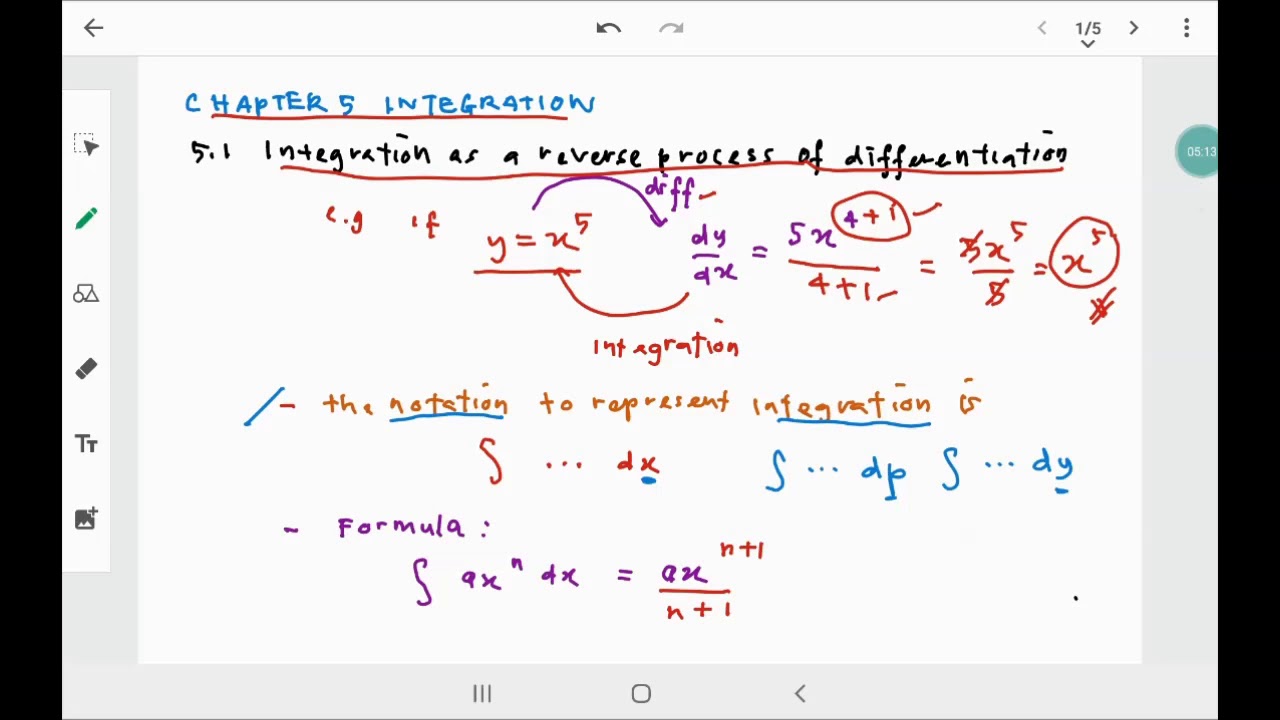 1/5
05:13
CHAPTER 5 INTEGRATION
5.1 Integration as a reverse process of differentiation
diff
e.g if y = x⁵ dy/dx = 5x⁴⁺¹/4+1 = 5x⁵/5 = x⁵
Integration
- the notation to represent integration is
∫ ... dx ∫ ... dp ∫ ... dy
- Formula:
∫ axⁿ dx = axⁿ⁺¹/n+1
Tт